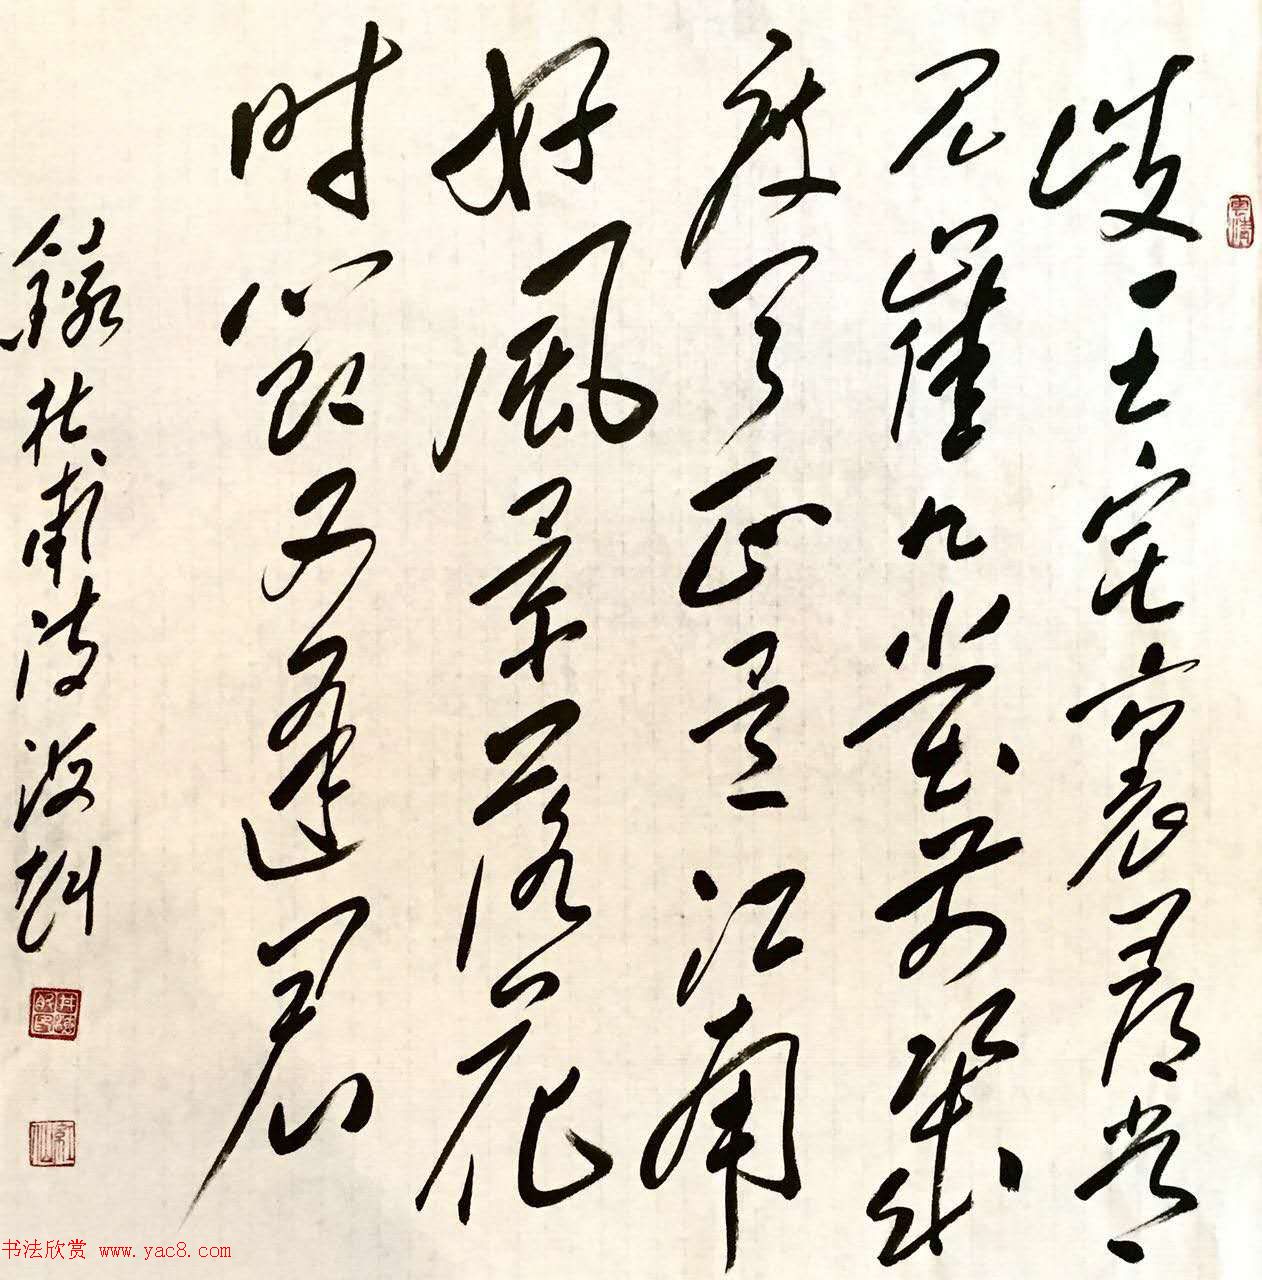 岐王宅裏尋常
見崔九堂前幾
度聞正是江南
好風景落花
时節又逢君
錄杜甫詩
书法欣赏 www.yac8.com